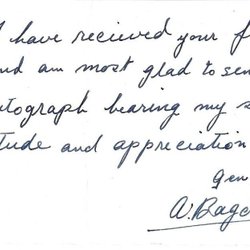 I have recieved your f
nd am most glad to sen
tograph bearing my s
tude and appreciation
Gen
A. Bago